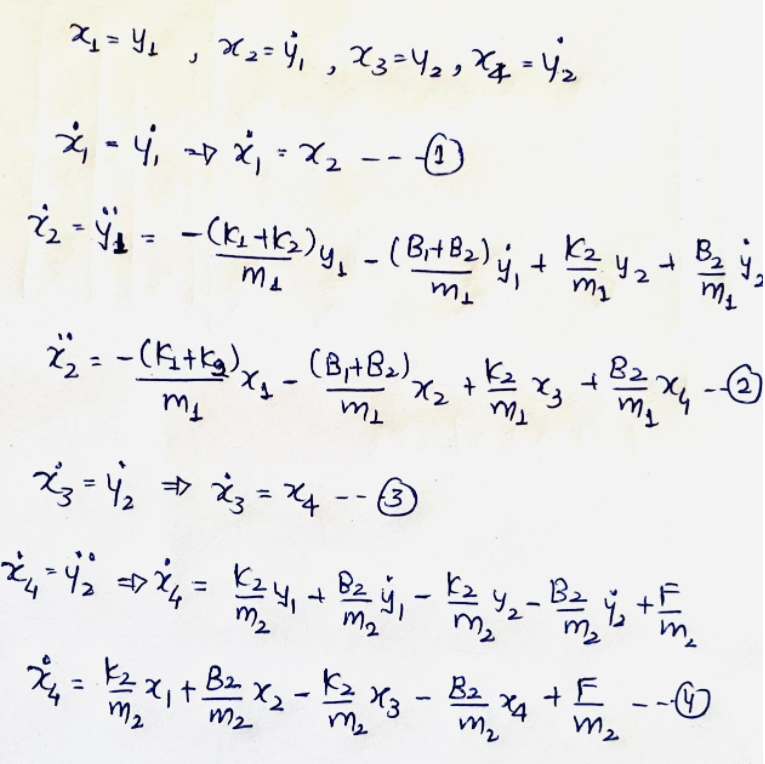 x₁ = y₁ , x₂ = ẏ₁ , x₃ = y₂ , x₄ = ẏ₂
ẋ₁ = ẏ₁ ⇒ ẋ₁ = x₂ --- ①
ẋ₂ = ÿ₁ = -(K₁+K₂)/m₁ y₁ - (B₁+B₂)/m₁ ẏ₁ + K₂/m₁ y₂ + B₂/m₁ ẏ₂
ẍ₂ = -(K₁+K₂)/m₁ x₁ - (B₁+B₂)/m₁ x₂ + K₂/m₁ x₃ + B₂/m₁ x₄ -- ②
ẋ₃ = ẏ₂ ⇒ ẋ₃ = x₄ -- ③
ẋ₄ = ÿ₂ ⇒ ẋ₄ = K₂/m₂ y₁ + B₂/m₂ ẏ₁ - K₂/m₂ y₂ - B₂/m₂ ẏ₂ + F/m₂
ẋ₄ = K₂/m₂ x₁ + B₂/m₂ x₂ - K₂/m₂ x₃ - B₂/m₂ x₄ + F/m₂ --- ④